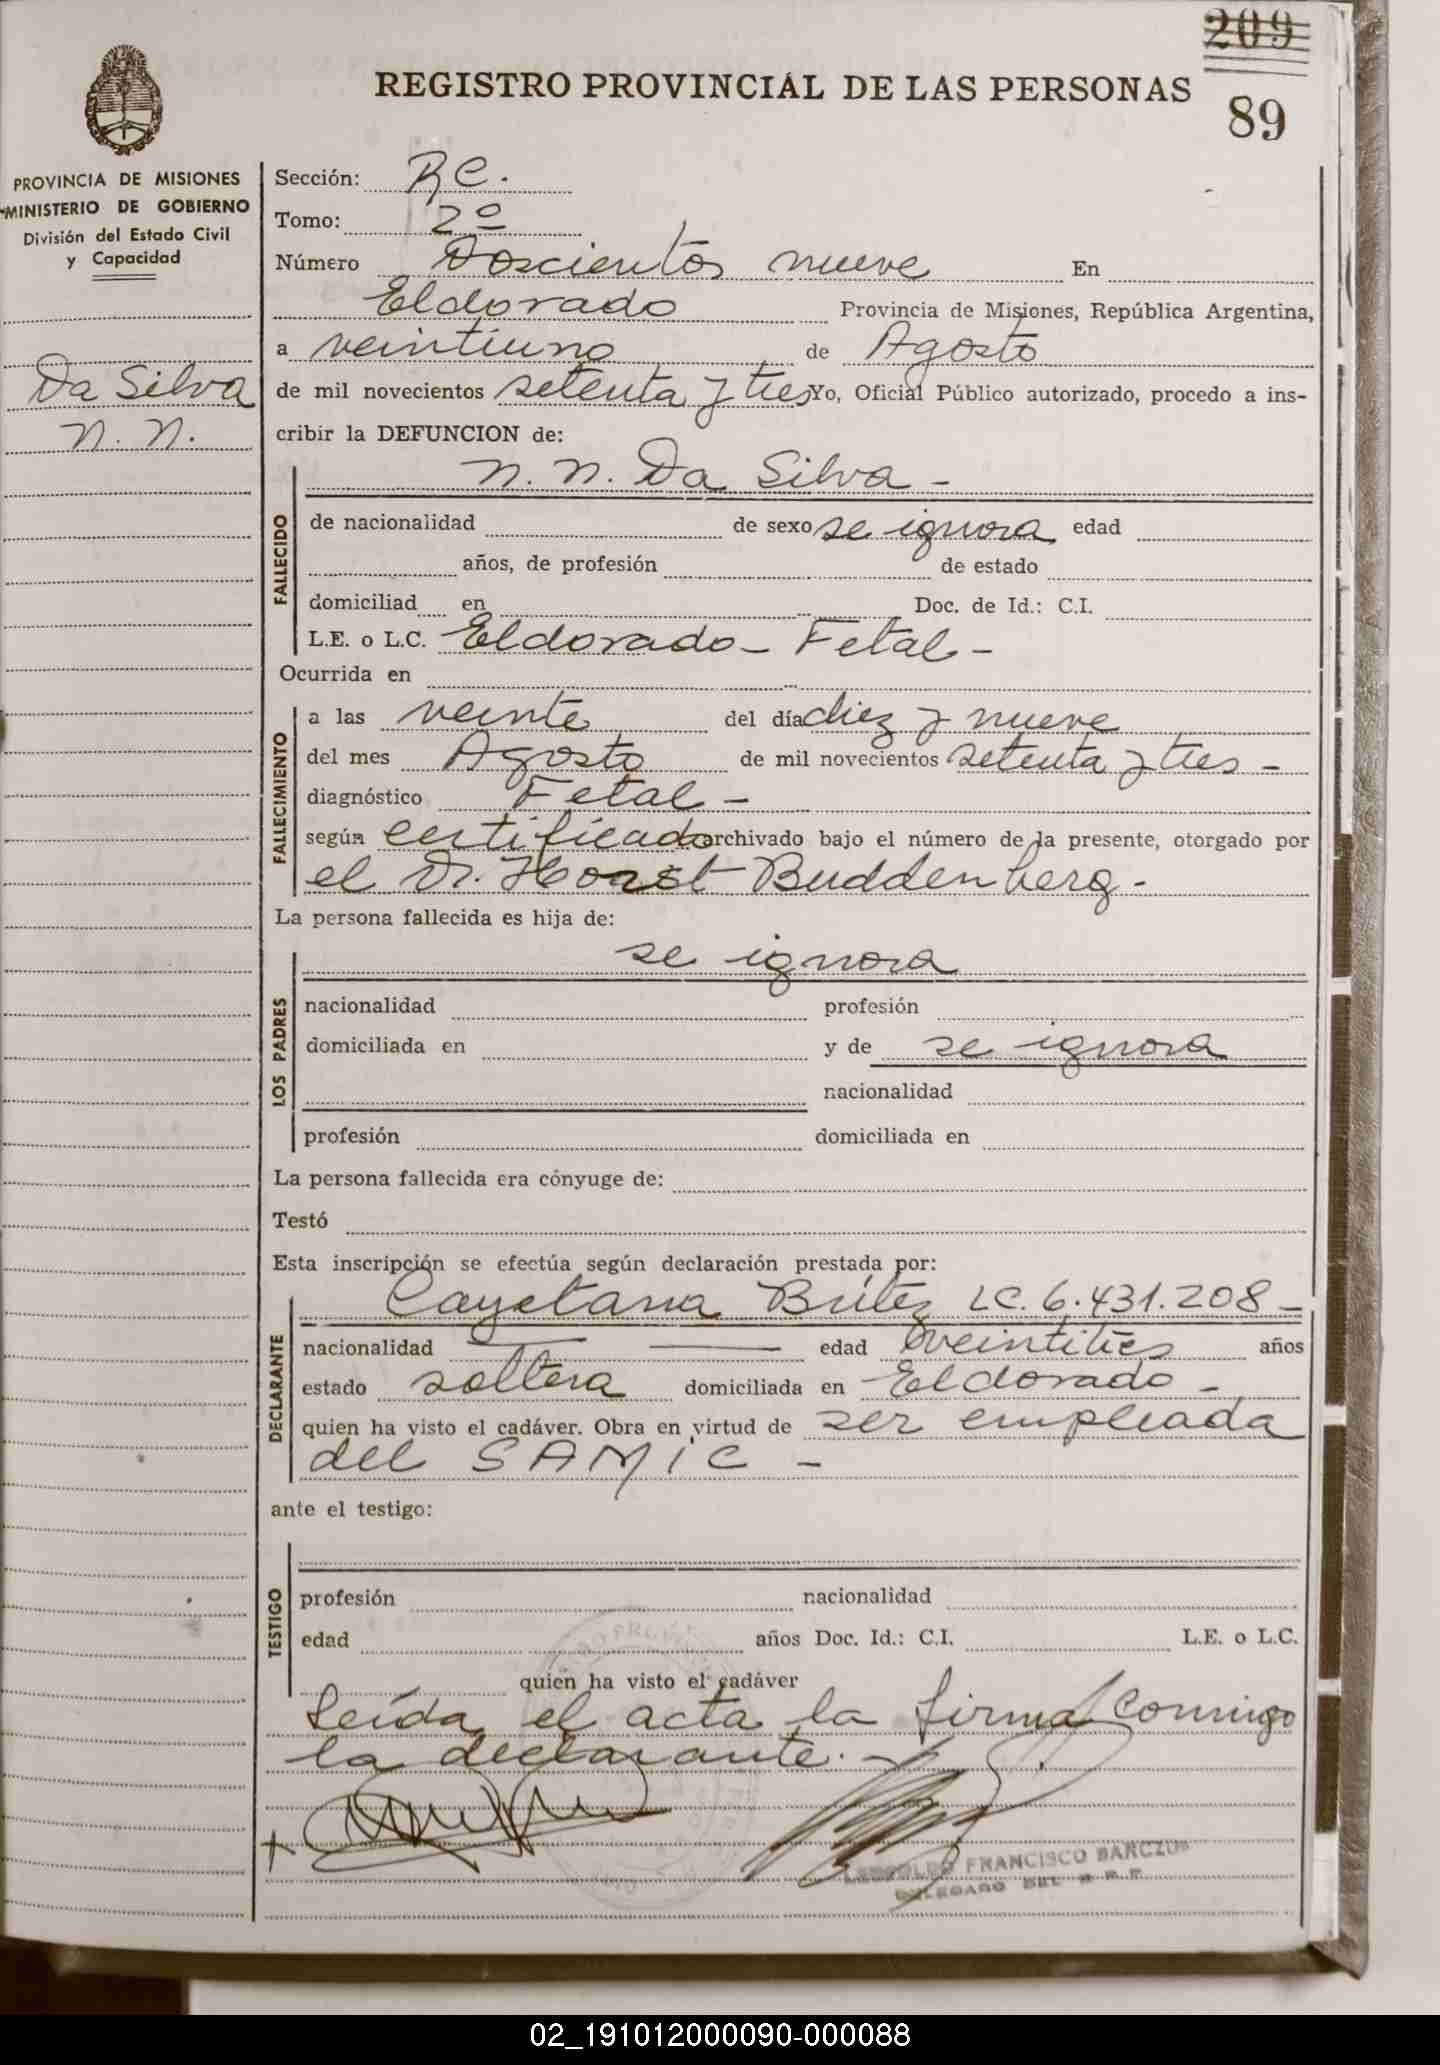 209
REGISTRO PROVINCIAL DE LAS PERSONAS
89
PROVINCIA DE MISIONES
MINISTERIO DE GOBIERNO
División del Estado Civil
y Capacidad
Da Silva
N. N.
Sección: RC.
Tomo: 2º
Número Doscientos nueve En
Eldorado Provincia de Misiones, República Argentina,
a veintiuno de Agosto
de mil novecientos setenta y tres Yo, Oficial Público autorizado, procedo a ins-
cribir la DEFUNCION de:
N. N. Da Silva -
FALLECIDO
de nacionalidad de sexo se ignora edad
años, de profesión de estado
domiciliad en Doc. de Id.: C.I.
L.E. o L.C. Eldorado - Fetal -
Ocurrida en
FALLECIMIENTO
a las veinte del día diez y nueve
del mes Agosto de mil novecientos setenta y tres -
diagnóstico Fetal -
según certificado archivado bajo el número de la presente, otorgado por
el Dr. Horst Buddenberg -
La persona fallecida es hija de:
se ignora
LOS PADRES
nacionalidad profesión
domiciliada en y de se ignora
nacionalidad
profesión domiciliada en
La persona fallecida era cónyuge de:
Testó
Esta inscripción se efectúa según declaración prestada por:
Cayetana Brítez LC. 6.431.208 -
DECLARANTE
nacionalidad edad veintitrés años
estado soltera domiciliada en Eldorado -
quien ha visto el cadáver. Obra en virtud de ser empleada
del SAMIC -
ante el testigo:
TESTIGO
profesión nacionalidad
edad años Doc. Id.: C.I. L.E. o L.C.
quien ha visto el cadáver
Leída el acta la firma conmigo
la declarante. -
LEOPOLDO FRANCISCO BARCZUK
DELEGADO DEL R. P. P.
02_191012000090-000088